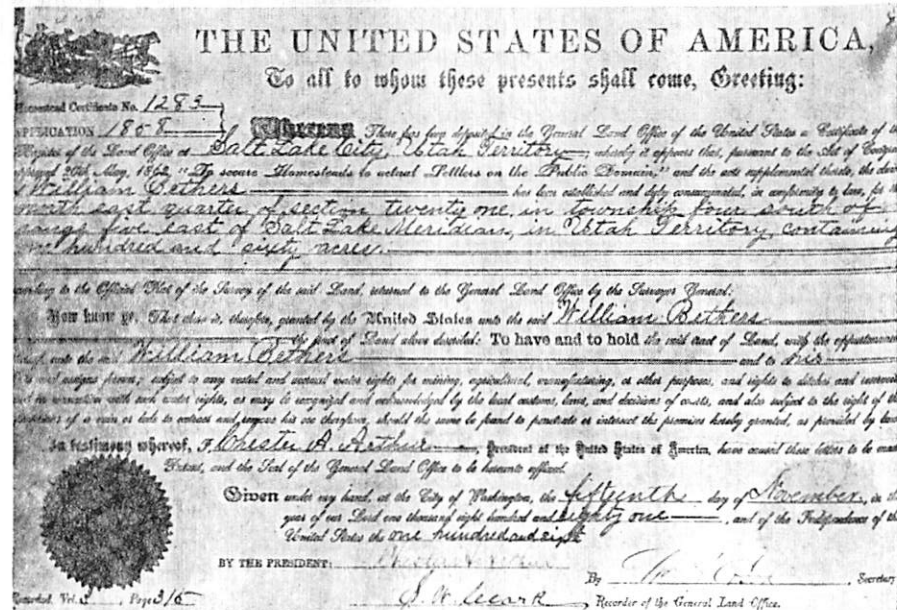 THE UNITED STATES OF AMERICA,
To all to whom these presents shall come, Greeting:
Homestead Certificate No. 1283
APPLICATION 1808
Whereas There has been deposited in the General Land Office of the United States a Certificate of the
Register of the Land Office at Salt Lake City, Utah Territory, whereby it appears that, pursuant to the Act of Congress
approved 20th May, 1862, "To secure Homesteads to actual Settlers on the Public Domain," and the acts supplemental thereto, the claim
of William Bethers has been established and duly consummated, in conformity to law, for the
north east quarter of section twenty one, in township four south of
range five east of Salt Lake Meridian, in Utah Territory, containing
one hundred and sixty acres.
according to the Official Plat of the Survey of the said Land, returned to the General Land Office by the Surveyor General:
Now know ye, That there is, therefore, granted by the United States unto the said William Bethers
the tract of Land above described: To have and to hold the said tract of Land, with the appurtenances
thereof, unto the said William Bethers and to his
heirs and assigns forever; subject to any vested and accrued water rights for mining, agricultural, manufacturing, or other purposes, and rights to ditches and reservoirs
used in connection with such water rights, as may be recognized and acknowledged by the local customs, laws, and decisions of courts, and also subject to the right of the
proprietor of a vein or lode to extract and remove his ore therefrom, should the same be found to penetrate or intersect the premises hereby granted, as provided by law.
In testimony whereof, I, Chester A. Arthur, President of the United States of America, have caused these letters to be made
Patent, and the Seal of the General Land Office to be hereunto affixed.
Given under my hand, at the City of Washington, the fifteenth day of November, in the
year of our Lord one thousand eight hundred and eighty one, and of the Independence of the
United States the one hundred and
BY THE PRESIDENT:
By , Secretary
Recorded, Vol. , Page 316
S. W. Clark, Recorder of the General Land Office.